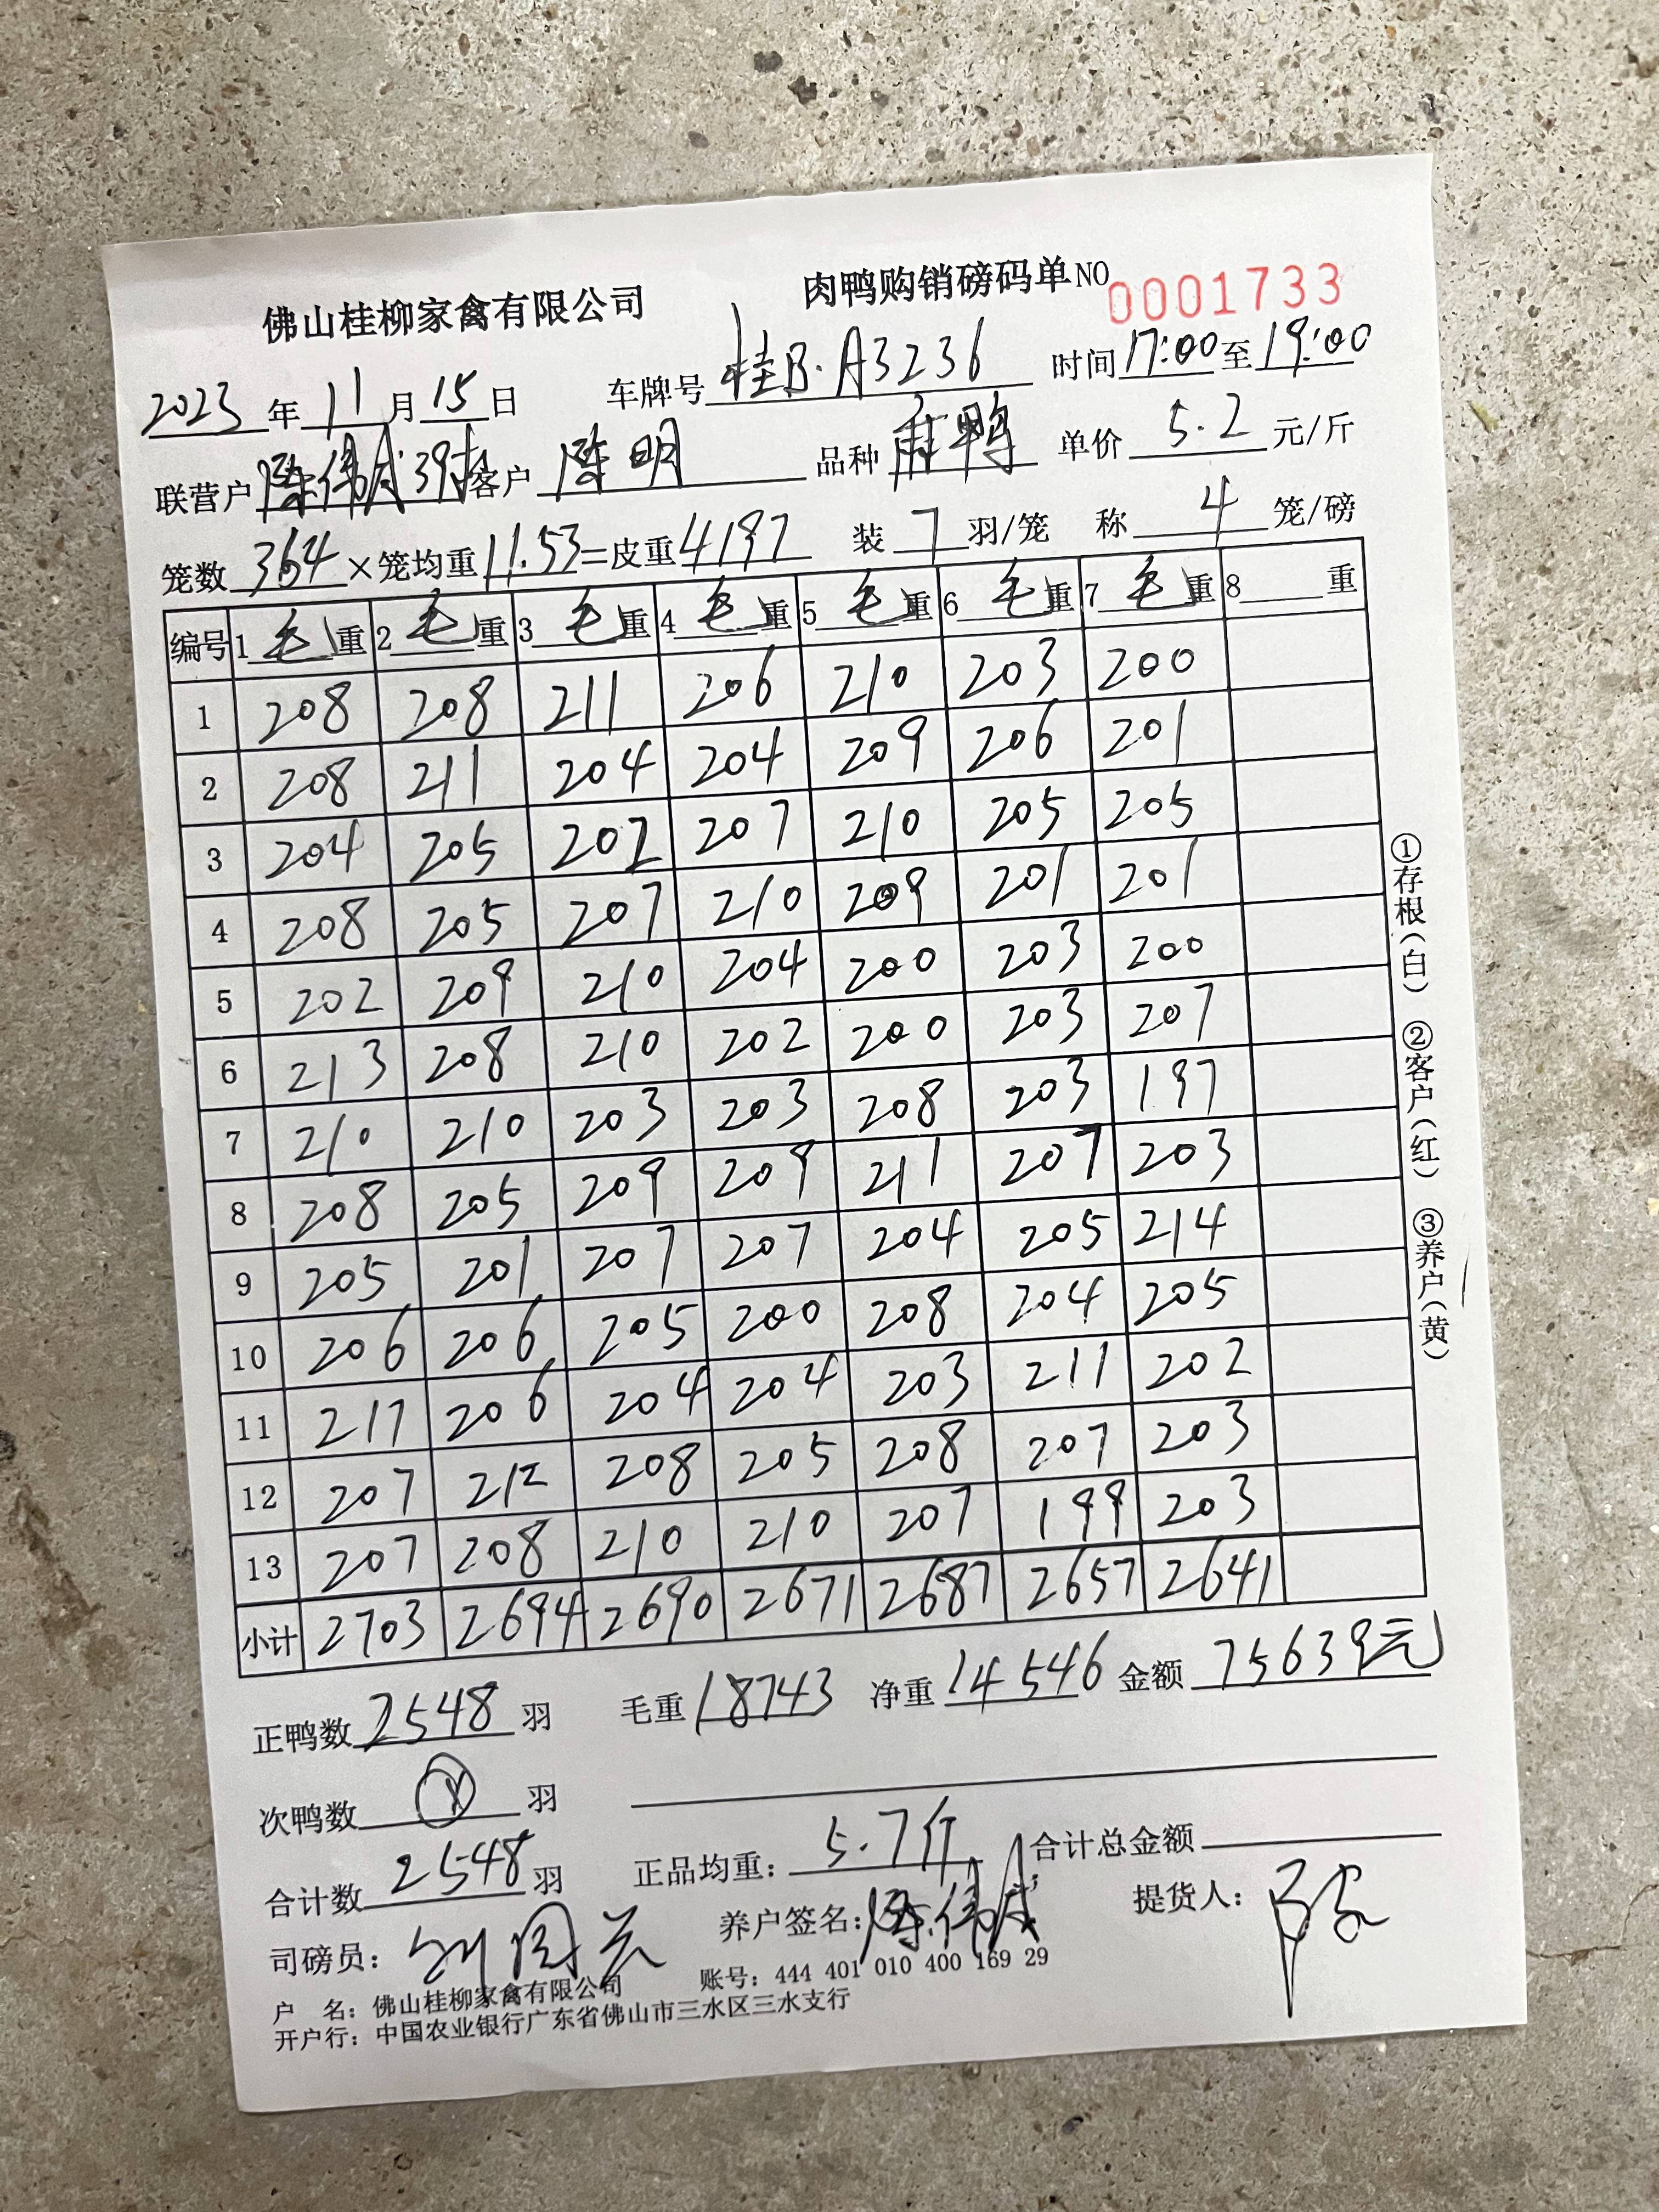 佛山桂柳家禽有限公司 肉鸭购销磅码单NO 0001733
2023年11月15日 车牌号桂B·A3236 时间17:00至19:00
联营户陈伟成39 客户陈明 品种麻鸭 单价5.2元/斤
笼数364×笼均重11.53=皮重4197 装7羽/笼 称4笼/磅
编号 1毛重 2毛重 3毛重 4毛重 5毛重 6毛重 7毛重 8重
1 208 208 211 206 210 203 200
2 208 211 204 204 209 206 201
3 204 205 202 207 210 205 205
4 208 205 207 210 209 201 201
5 202 209 210 204 200 203 200
6 213 208 210 202 200 203 207
7 210 210 203 203 208 203 197
8 208 205 209 209 211 207 203
9 205 201 207 207 204 205 214
10 206 206 205 200 208 204 205
11 217 206 204 204 203 211 202
12 207 212 208 205 208 207 203
13 207 208 210 210 207 199 203
小计 2703 2694 2690 2671 2687 2657 2641
正鸭数2548羽 毛重18743 净重14546 金额75639元
次鸭数 羽
合计数2548羽 正品均重:5.7斤 合计总金额
司磅员: 养户签名:陈伟成 提货人:
户 名:佛山桂柳家禽有限公司 账号:444 401 010 400 169 29
开户行:中国农业银行广东省佛山市三水区三水支行
①存根(白) ②客户(红) ③养户(黄)